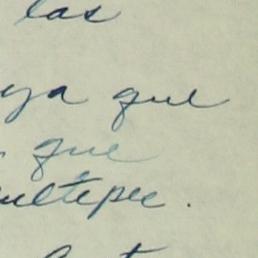 las
ya que
que
ultepec.